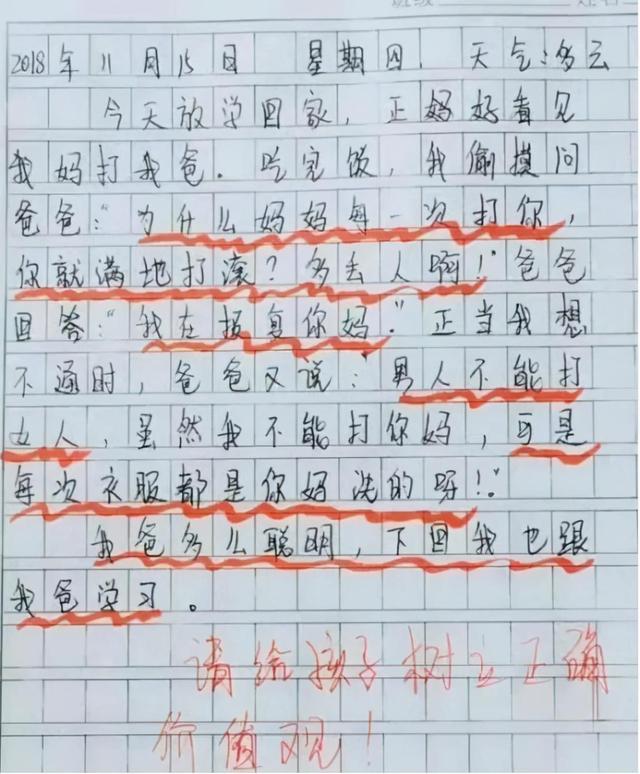 班级 姓名
2018年11月15日 星期四. 天气:多云
今天放学回家,正妈好看见
我妈打我爸.吃完饭,我偷摸问
爸爸:"为什么妈妈每一次打你,
你就满地打滚?多丢人啊!"爸爸
回答:"我在报复你妈."正当我想
不通时,爸爸又说:"男人不能打
女人,虽然我不能打你妈,可是
每次衣服都是你妈洗的呀!"
我爸多么聪明,下回我也跟
我爸学习。
请给孩子树立正确
价值观!